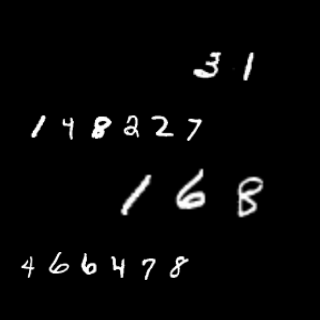 31
148227
168
466478